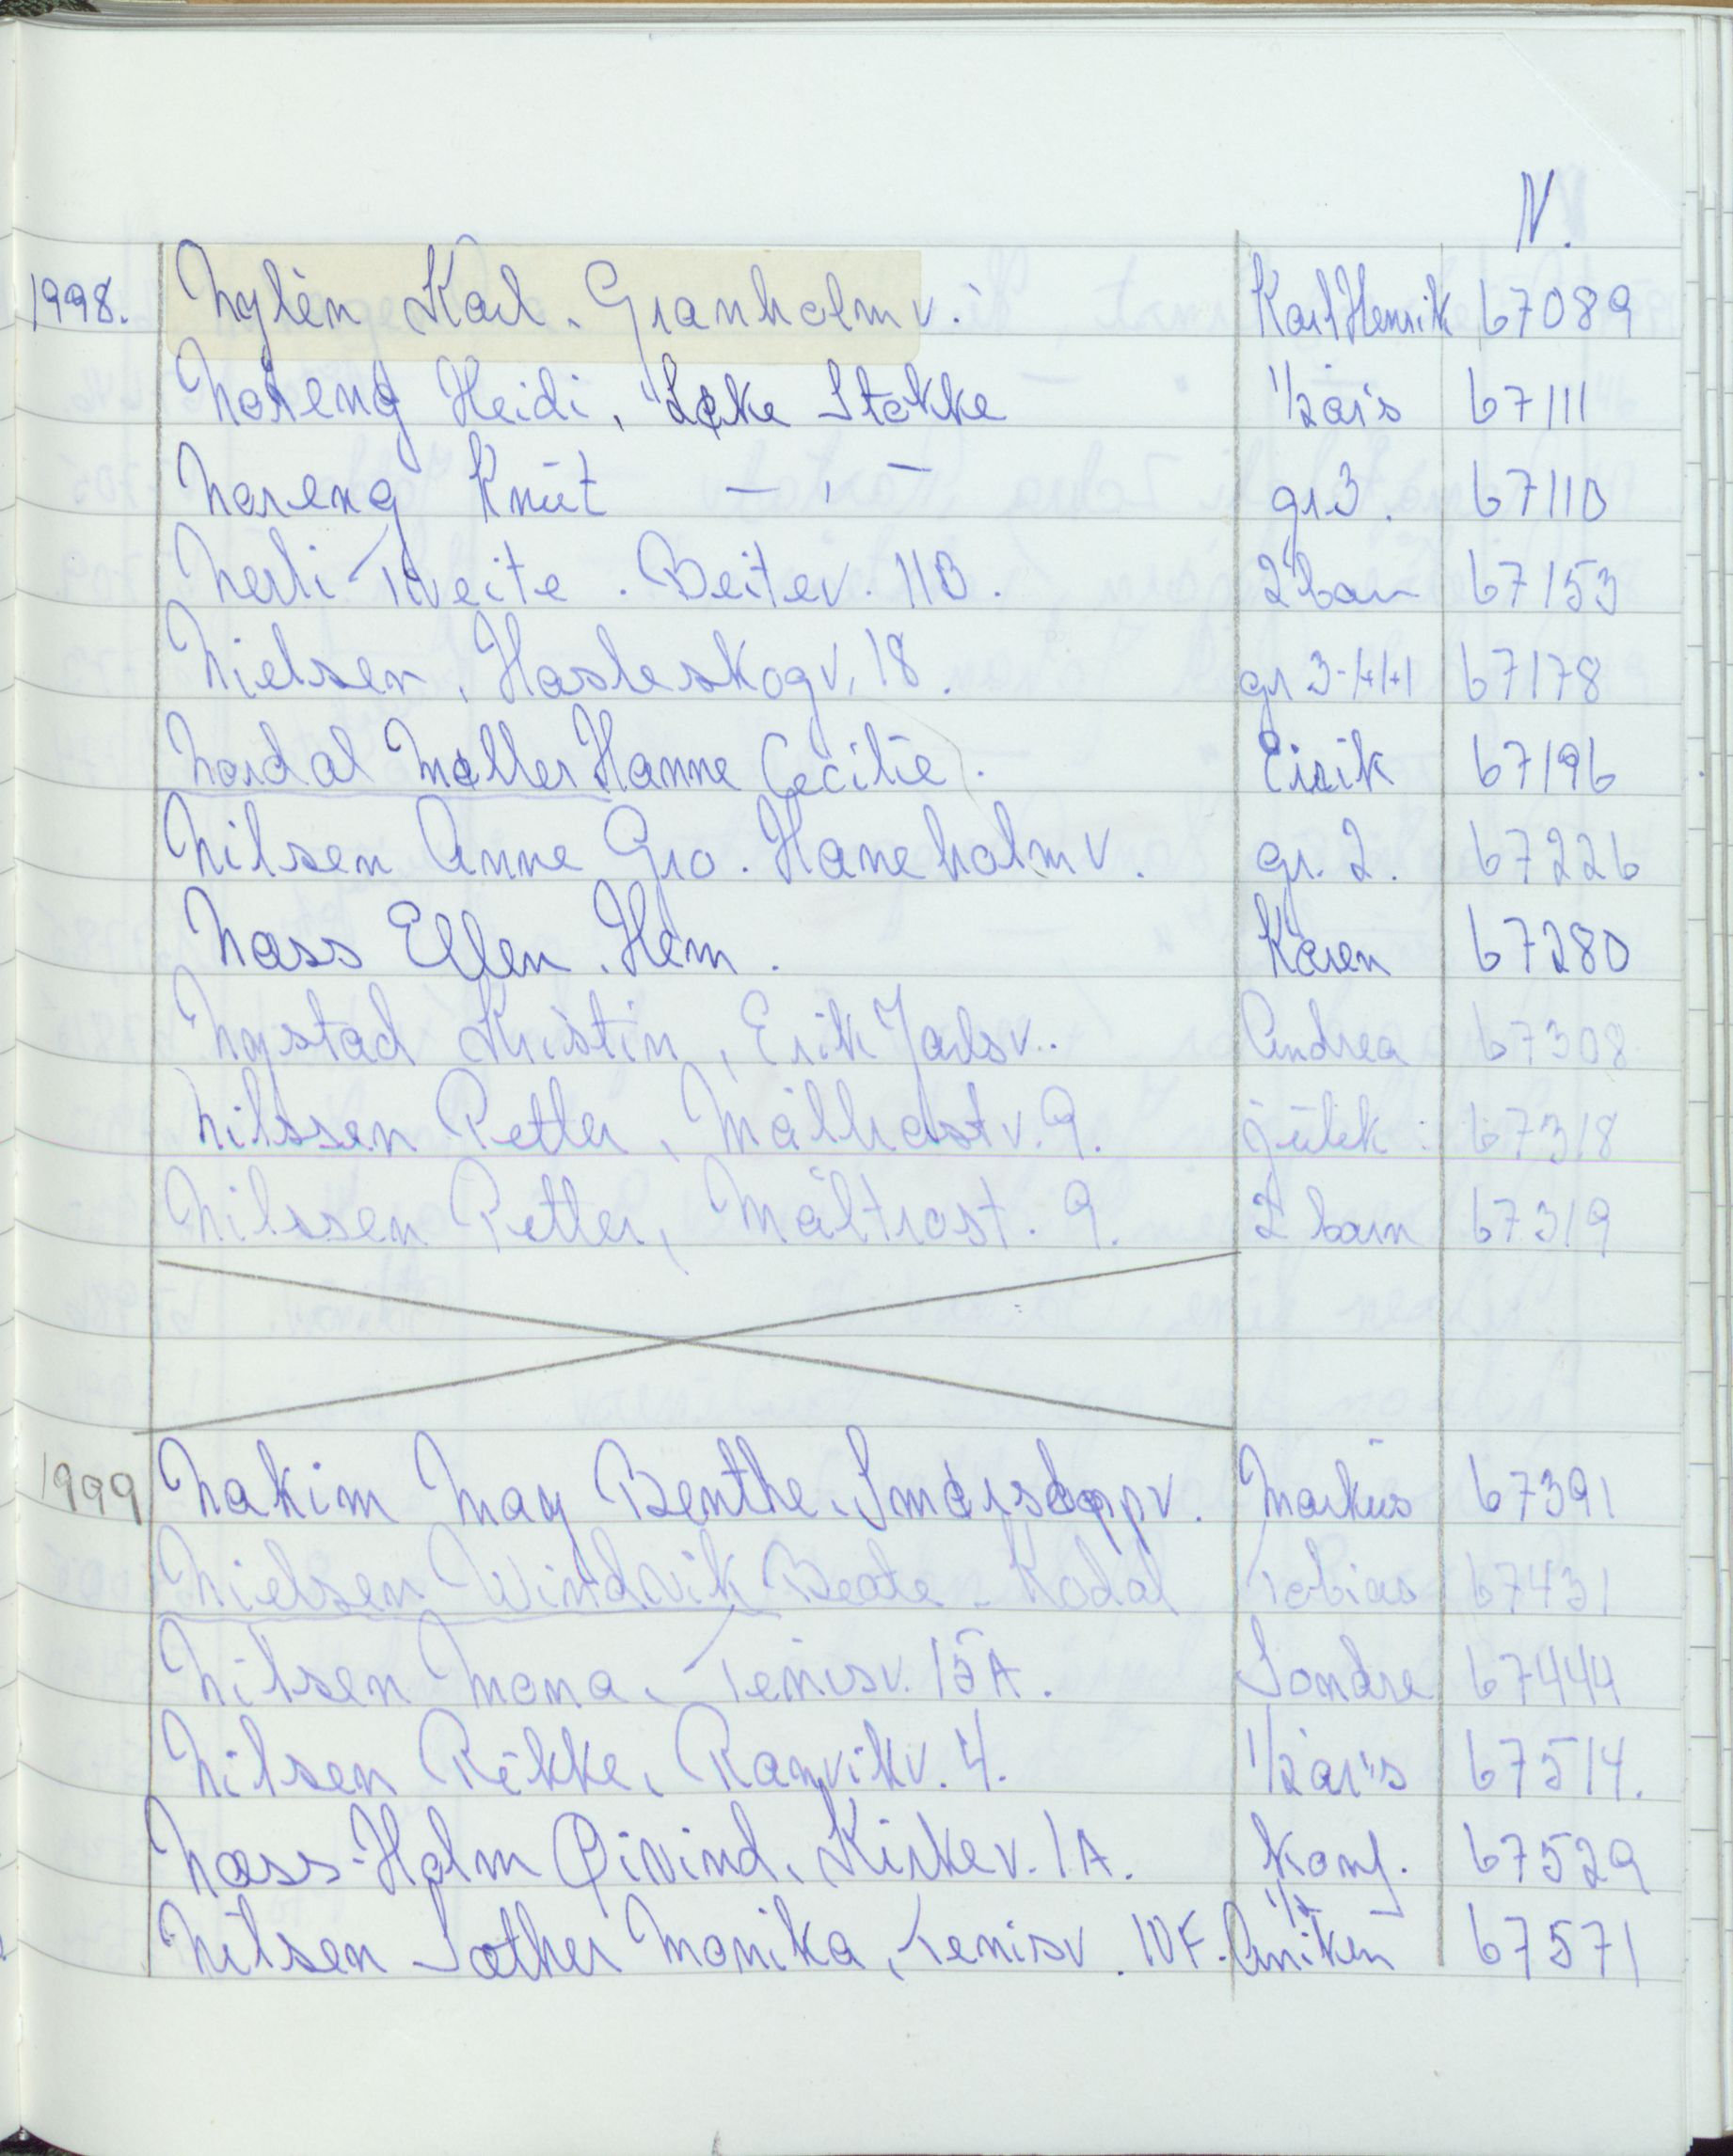 N.
1998. Nylèn Karl. Granholmv. Karl Henrik 67089
Noreng Heidi, Løke Stokke 1/2 års 67111
Noreng Knut — " — gr 3. 67110
Nerli-Tveite. Beitev. 11B. 2 barn 67153
Nielsen, Hasleskogv. 18. gr 3-1+1+1 67178
Nordal Møller Hanne Cecilie. Eirik 67196
Nilsen Anne Gro. Haneholmv. gr. 2. 67226
Næss Ellen. Hem. Karen 67280
Nystad Kristin, Erik Jarlsv. Andrea 67308
Nilssen Petter, Måltrostv. 9. julek: 67318
Nilssen Petter, Måltrost. 9. 2 barn 67319
1999 Nakim May Benthe. Markus 67391
Nielsen Windvik Beate. Kodal Tobias 67431
Nilsen Mona. Tenisv. 15A. Sondre 67444
Nilsen Rikke, Ranvikv. 4. 1/2 års 67514.
Næss-Holm Øivind. Kirkev. 1A. Konf. 67529
Nilsen Sother Monika, Tenisv. 10F. 1/2 Aniken 67571